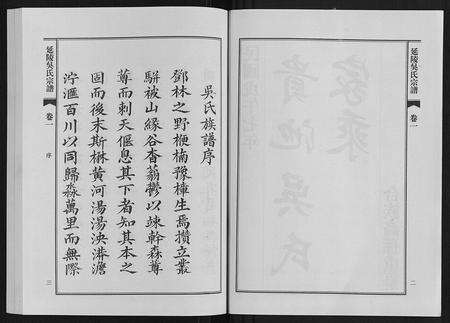 延陵吳氏宗譜
卷一
二
吳氏族譜序
鄧林之野楩楠豫樟生焉攢立叢
駢被山緣谷杳蓊鬱以竦幹森蓴
蓴而刺天偃息其下者知其本之
固而後末斯楙黃河湯湯泱漭澹
泞滙百川以同歸淼萬里而無際
延陵吳氏宗譜
卷一
序
三